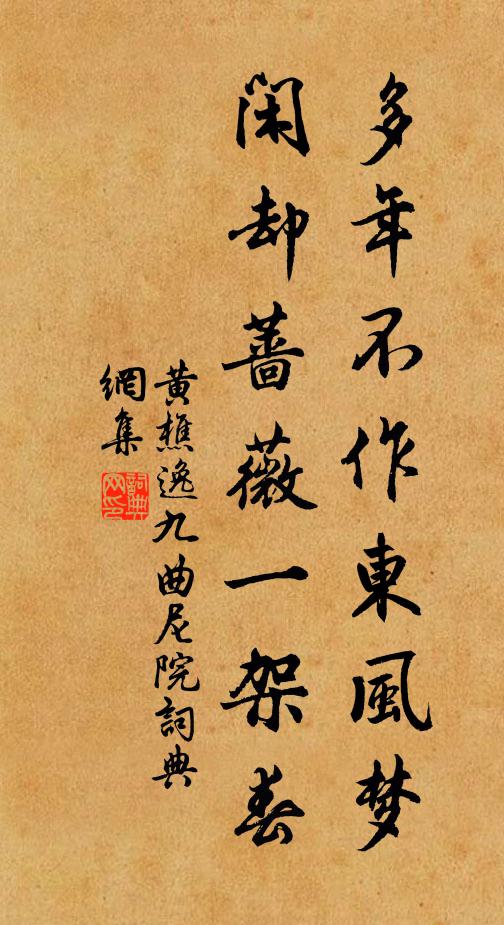 多年不作東風梦
閑却蔷薇一架春
黄樵逸九曲尼院詞典
網集
詞典网印